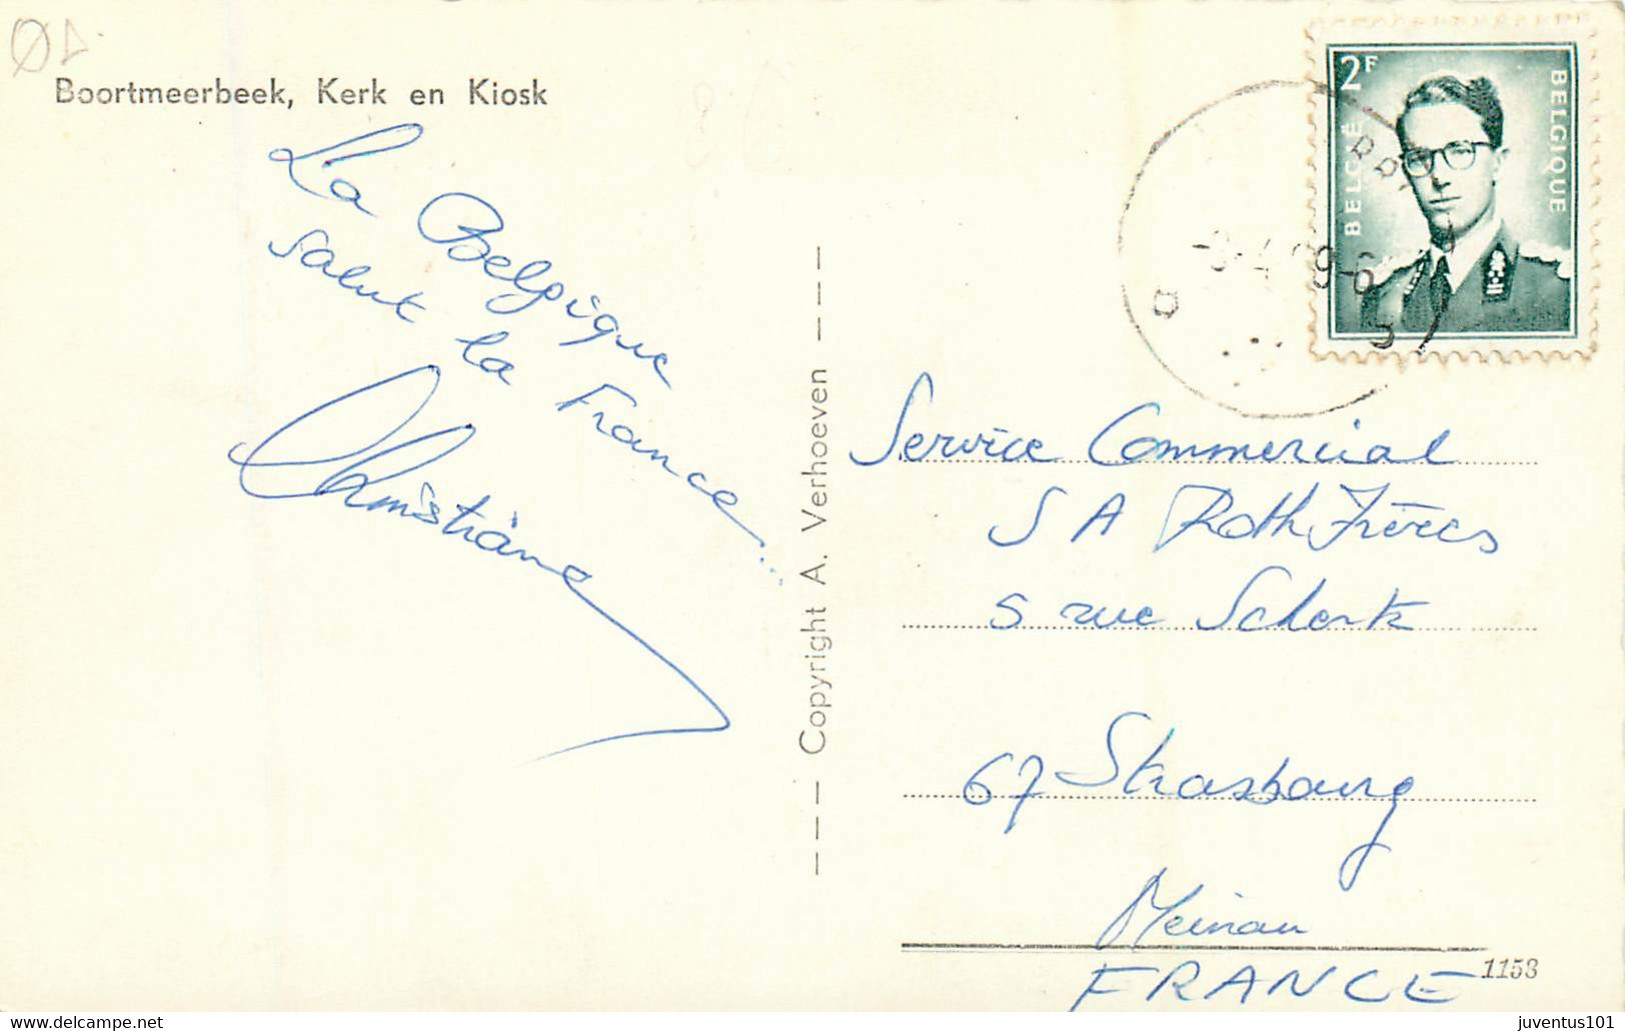 Boortmeerbeek, Kerk en Kiosk
La Belgique
salut la France...
Christiane
Copyright A. Verhoeven
2F
BELGIË
BELGIQUE
Service Commercial
S A Roth Frères
5 rue Schertz
67 Strasbourg
Meinau
FRANCE
1153
www.delcampe.net
juventus101